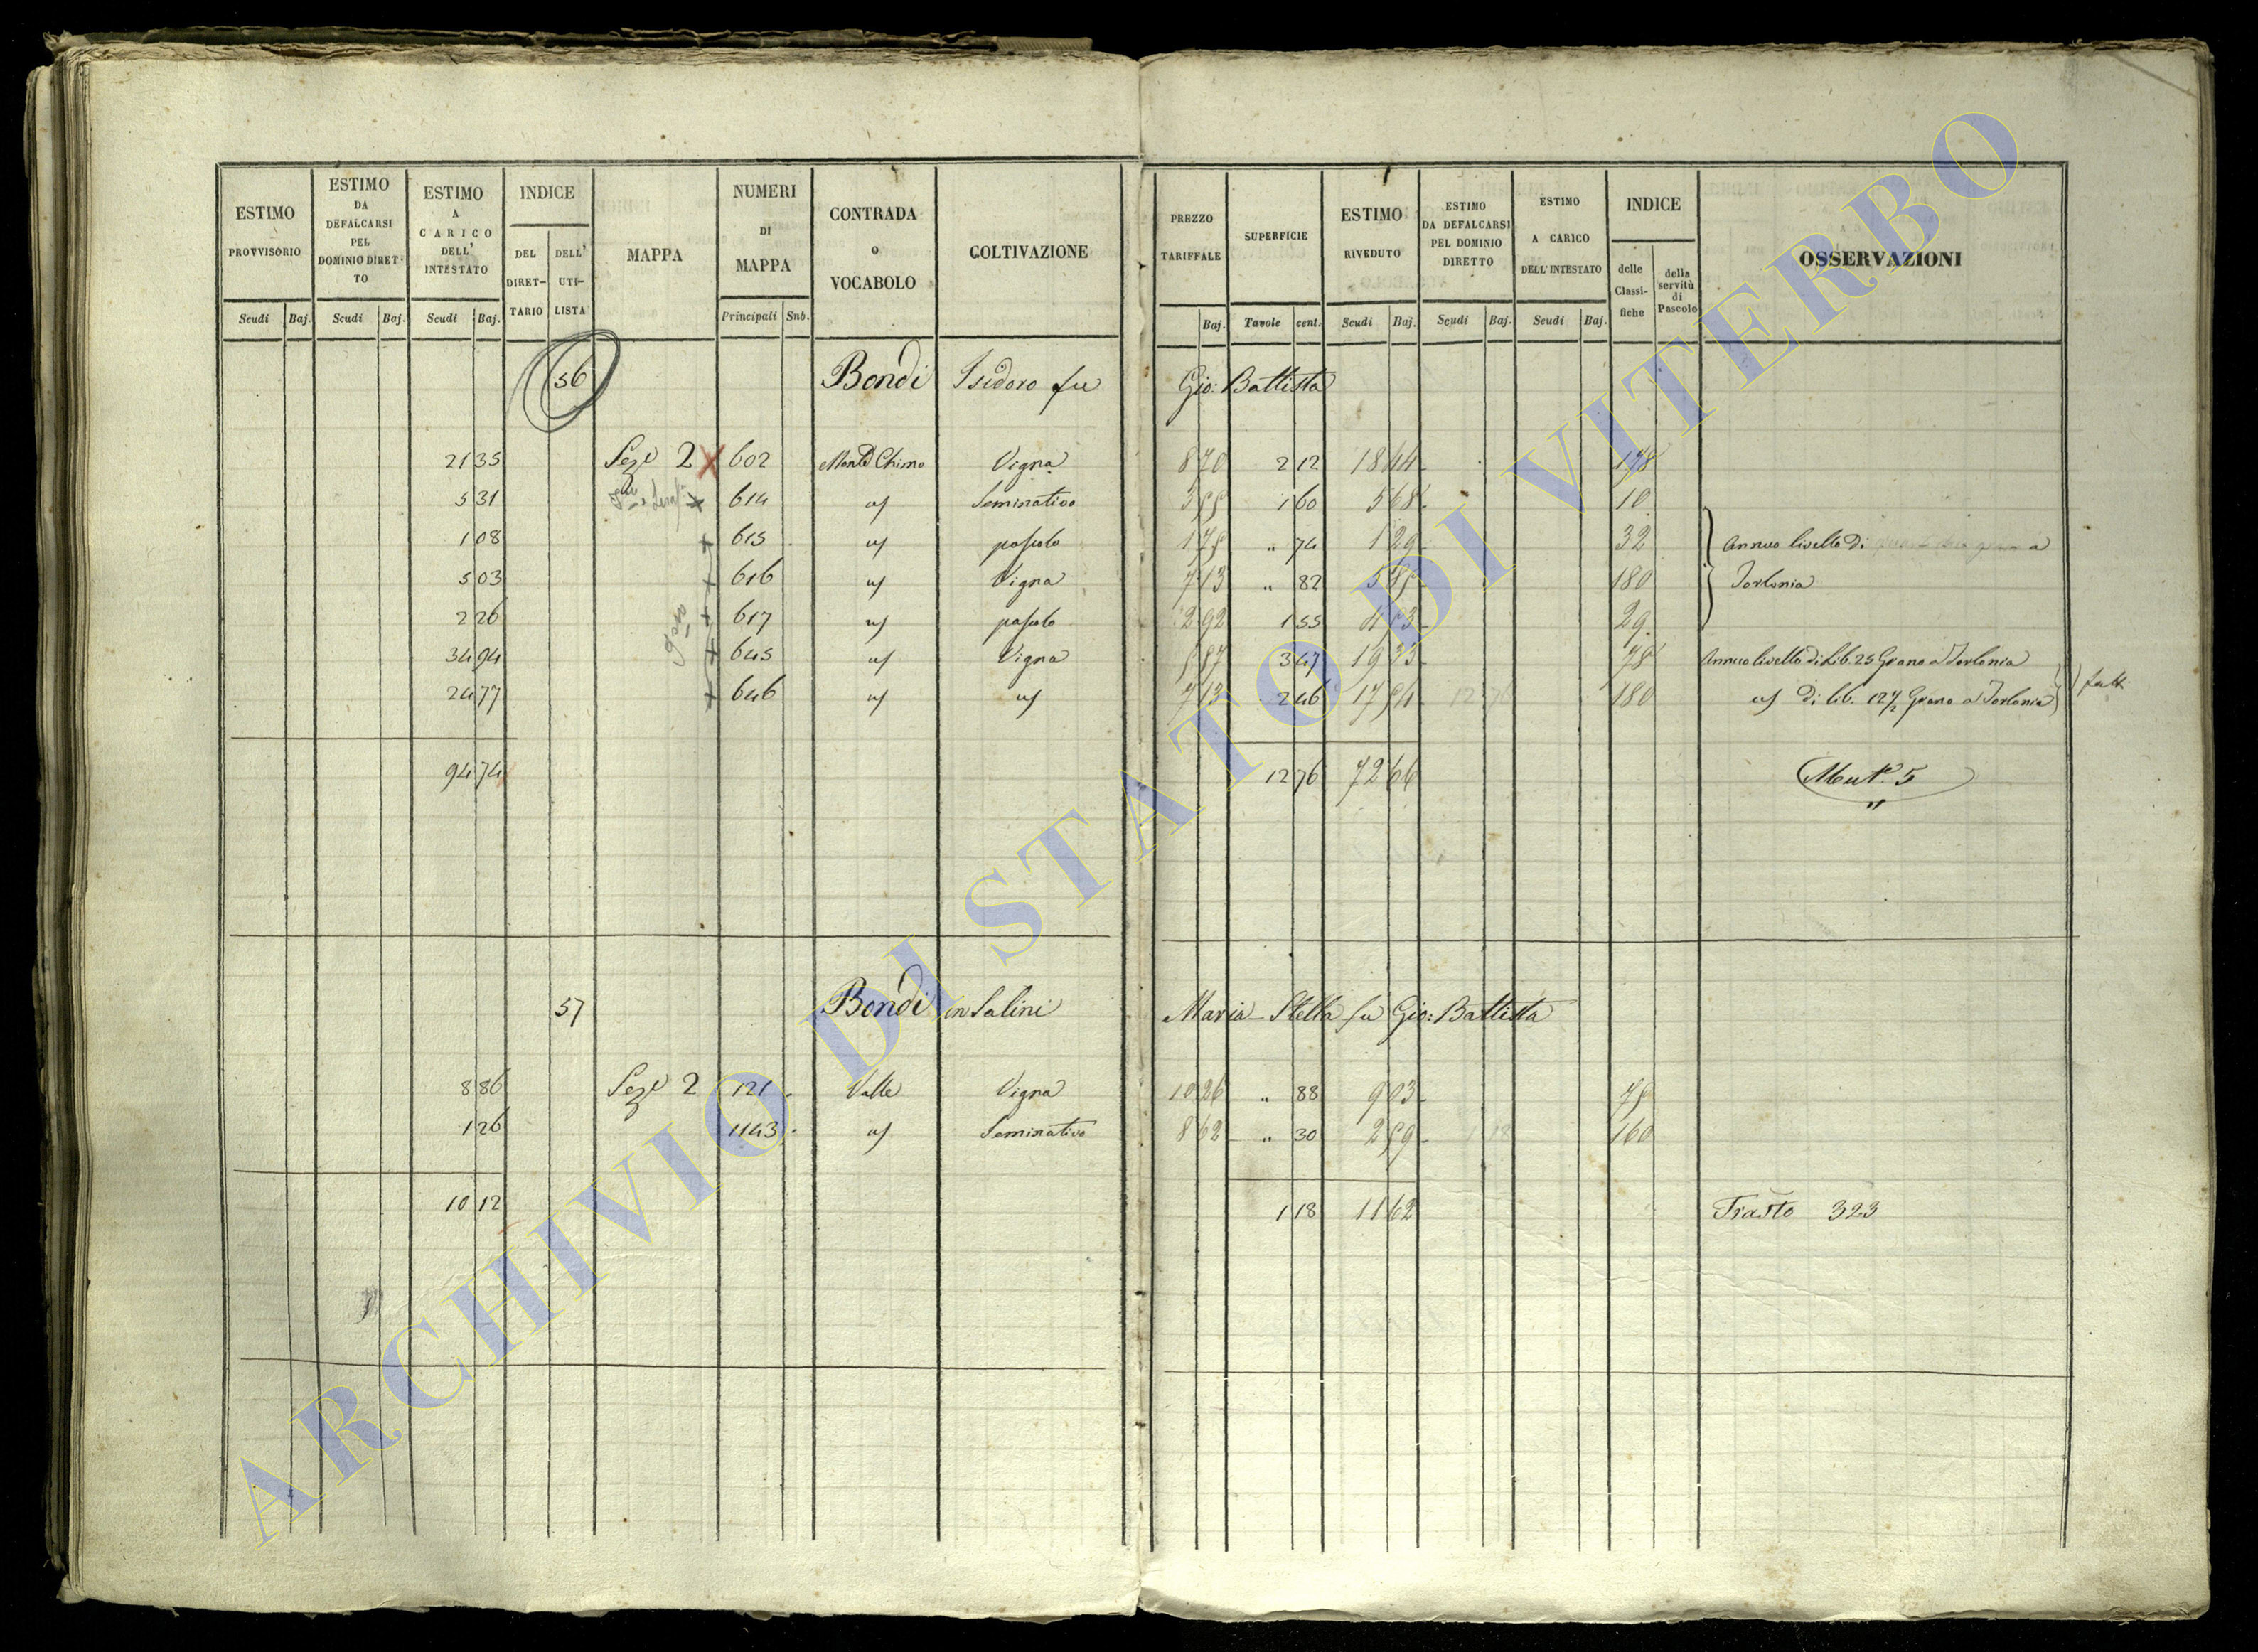 ESTIMO PROVVISORIO
ESTIMO DA DEFALCARSI PEL DOMINIO DIRET-TO
ESTIMO A CARICO DELL' INTESTATO
INDICE
DEL DIRET-TARIO
DELL' UTI-LISTA
MAPPA
NUMERI DI MAPPA
CONTRADA O VOCABOLO
COLTIVAZIONE
PREZZO TARIFFALE
SUPERFICIE
ESTIMO RIVEDUTO
ESTIMO DA DEFALCARSI PEL DOMINIO DIRETTO
ESTIMO A CARICO DELL'INTESTATO
INDICE
delle Classi-fiche
della servitù di Pascolo
OSSERVAZIONI
Scudi Baj. Scudi Baj. Scudi Baj. Principali Sub. Baj. Tavole cent. Scudi Baj. Scudi Baj. Scudi Baj.
56 Bondi Isidoro fu Gio: Battista
21 35 Seze 2 602 Vigna 8 70 2 12 18 44 178
5 31 614 Seminativo 3 55 1 60 5 68 10
1 08 615 pascolo 1 75 " 74 1 29 32 Annuo livello di a
5 03 616 Vigna 7 13 " 82 5 85 180 Torlonia
2 26 617 pascolo 2 92 1 55 4 53 29
34 94 645 Vigna 5 57 3 47 19 33 78 Annuo livello di Lib. 25 Grano a Torlonia
24 77 646 7 13 2 46 17 54 180 di lib. 12 1/2 Grano a Torlonia
94 74 12 76 72 66 Mut. 5
57 Bondi in Salini Maria Stella fu Gio: Battista
8 86 Seze 2 121 Valle Vigna 10 26 " 88 9 03 75
1 26 1143 Seminativo 8 62 " 30 2 59 160
10 12 1 18 11 62 Trasto 323
ARCHIVIO DI STATO DI VITERBO